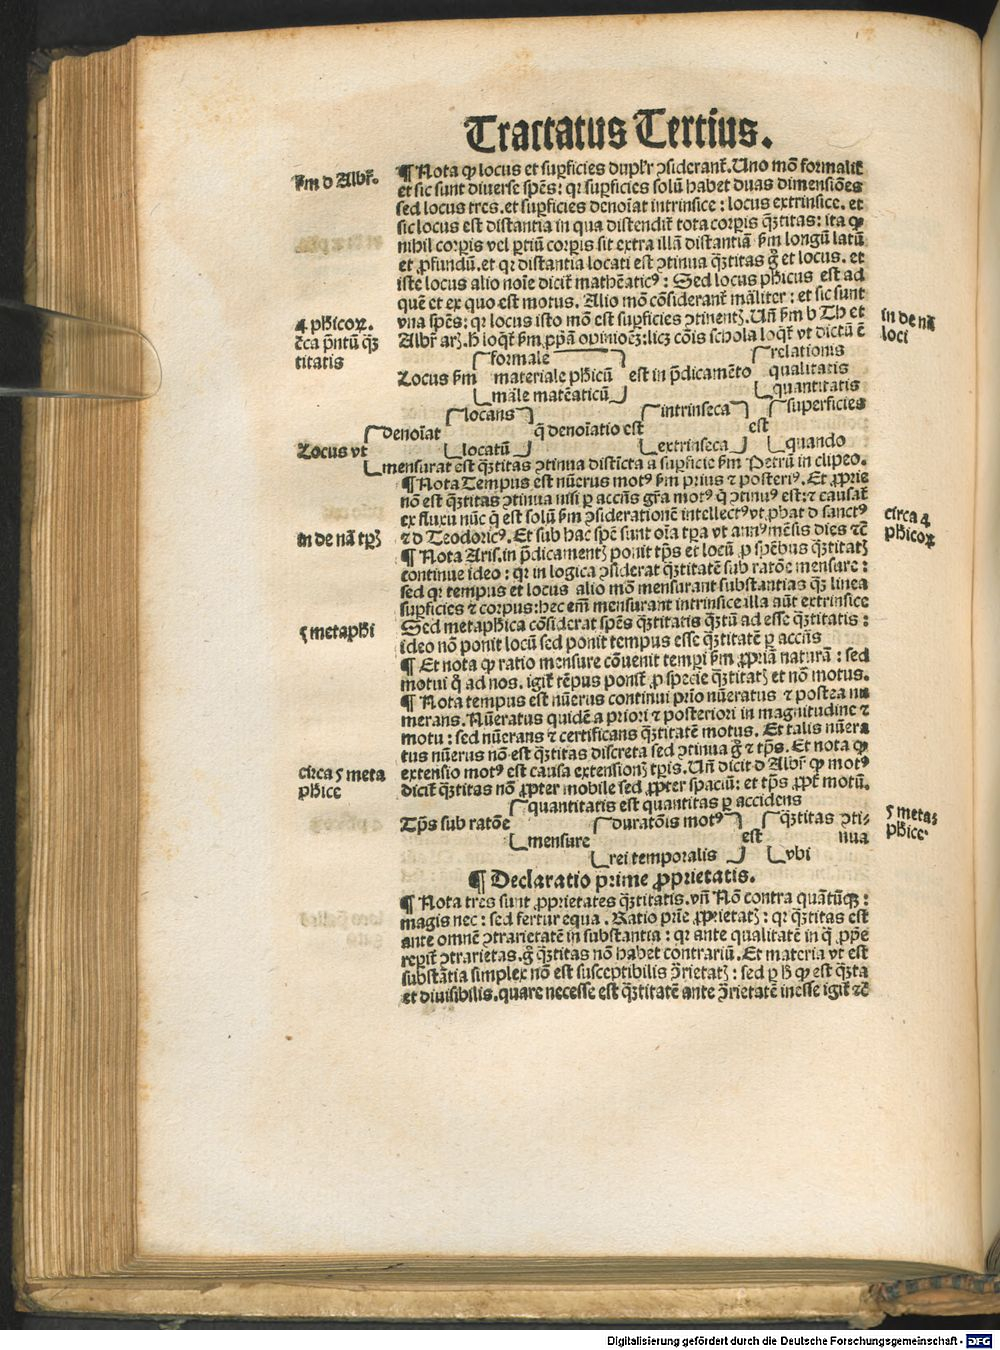 Tractatus Tertius.
ẜm d Albr̄.
¶ Nota ꝙ locus et sup̱ficies duplr̄ ↄsiderant̄. Uno mō formalit̄
et sic sunt diuerse spēs: qꝛ sup̱ficies solū habet duas dimensiões
sed locus tres. et sup̱ficies denoīat intrinsice: locus extrinsice. et
sic locus est distantia in qua distendit̄ tota corp̱is q̄ꝫtitas: ita ꝙ
nihil corp̱is vel p̱tiū corp̱is sit extra illā distantiā ẜm longū latū
et ꝓfundū. et qꝛ distantia locati est ↄtinua q̄ꝫtitas g̊ et locus. et
iste locus alio noīe dicit̄ mathēaticꝰ: Sed locus ph̄icus est ad
quē et ex quo est motus. Alio mō cōsiderant̄ māliter: et sic sunt
4 ph̄icoꝝ.
c̄ca p̄ntū q̄ꝫ
titatis
vna spēs: qꝛ locus isto mō est sup̱ficies ↄtinentꝭ. Un̄ ẜm b Th et
Albr̄ arꝭ. h̄ loqt̄ ẜm ꝓpꝛiā opinioēꝫ: licꝫ cōis schola loqt̄ vt dictū ē
in de nā
loci
formale relationis
Locus ẜm materiale ph̄icū est in p̄dicamēto qualitatis
māle matēaticū quantitatis
locans intrinseca superficies
denoīat q̄ denoīatio est est
Locus vt locatū extrinseca quando
mensurat est q̄ꝫtitas ↄtinua distīcta a sup̱ficie ẜm Petrū in clipeo.
¶ Nota Tempus est nūerus motꝰ ẜm prius ⁊ posteriꝰ. Et ꝓprie
nō est q̄ꝫtitas ↄtinua nisi p̱ accn̄s gr̄a motꝰ q̄ ↄtinuꝰ est: ⁊ causat̄
ex fluxu nūc q̄ est solū ẜm ↄsiderationē intellectꝰ vt ꝓbat d sanctꝰ
circa 4
ph̄icoꝝ
in de nā tp̱ꝭ
⁊ d Teodoricꝰ. Et sub hac spē sunt oīa tp̱a vt annꝰ mēsis dies ⁊c̄
¶ Nota Aris. in p̄dicamentꝭ ponit tp̄s et locū ꝓ spēbus q̄ꝫtitatꝭ
continue ideo: qꝛ in logica ↄsiderat q̄ꝫtitatē sub ratōe mensure:
sed qꝛ tempus et locus alio mō mensurant substantias q̄ꝫ linea
sup̱ficies ⁊ corpus: hec em̄ mensurant intrinsice illa aūt extrinsice
5 metaph̄i
Sed metaph̄ica cōsiderat spēs q̄ꝫtitatis q̄ꝫtū ad esse q̄ꝫtitatis:
ideo nō ponit locū sed ponit tempus esse q̄ꝫtitatē p̱ accn̄s
¶ Et nota ꝙ ratio mensure cōuenit temp̱i ẜm ꝓpriā naturā: sed
motui q̊ ad nos. igit̄ tēpus ponit̄ ꝓ specie q̄ꝫtitatꝭ et nō motus.
¶ Nota tempus est nūerus continui prio nūeratus ⁊ postea nu
merans. Nūeratus quidē a priori ⁊ posteriori in magnitudine ⁊
motu: sed nūerans ⁊ certificans q̄ꝫtitatē motus. Et talis nūera
tus nūerus nō est q̄ꝫtitas discreta sed ↄtinua g̊ ⁊ tp̄s. Et nota ꝙ
circa 5 meta
ph̄ice
extensio motꝰ est causa extensionꝭ tp̱is. Un̄ dicit d Albr̄ ꝙ motꝰ
dicit̄ q̄ꝫtitas nō ꝓpter mobile sed ꝓpter spaciū: et tp̄s ꝓpt̄ motū.
quantitatis est quantitas p̱ accidens
Tp̄s sub ratōe duratōis motꝰ q̄ꝫtitas ↄti-
mensure est nua
rei temporalis vbi
5 meta⸗
ph̄ice.
¶ Declaratio prime ꝓprietatis.
¶ Nota tres sunt ꝓprietates q̄ꝫtitatis. vn̄ Nō contra quātūcꝫ:
magis nec: sed fertur equa. Ratio prīe ꝓprietatꝭ: qꝛ q̄ꝫtitas est
ante omnē ↄtrarietatē in substantia: qꝛ ante qualitatē in q̄ ꝓp̄e
rep̱it̄ ↄtrarietas. g̊ q̄ꝫtitas nō habet contrariū. Et materia vt est
substātia simplex nō est susceptibilis ↄ̄rietatꝭ: sed p̱ h̄ ꝙ est q̄ꝫta
et diuisibilis. quare necesse est q̄ꝫtitatē ante ↄ̄rietatē inesse igit̄ ⁊c̄
Digitalisierung gefördert durch die Deutsche Forschungsgemeinschaft - DFG